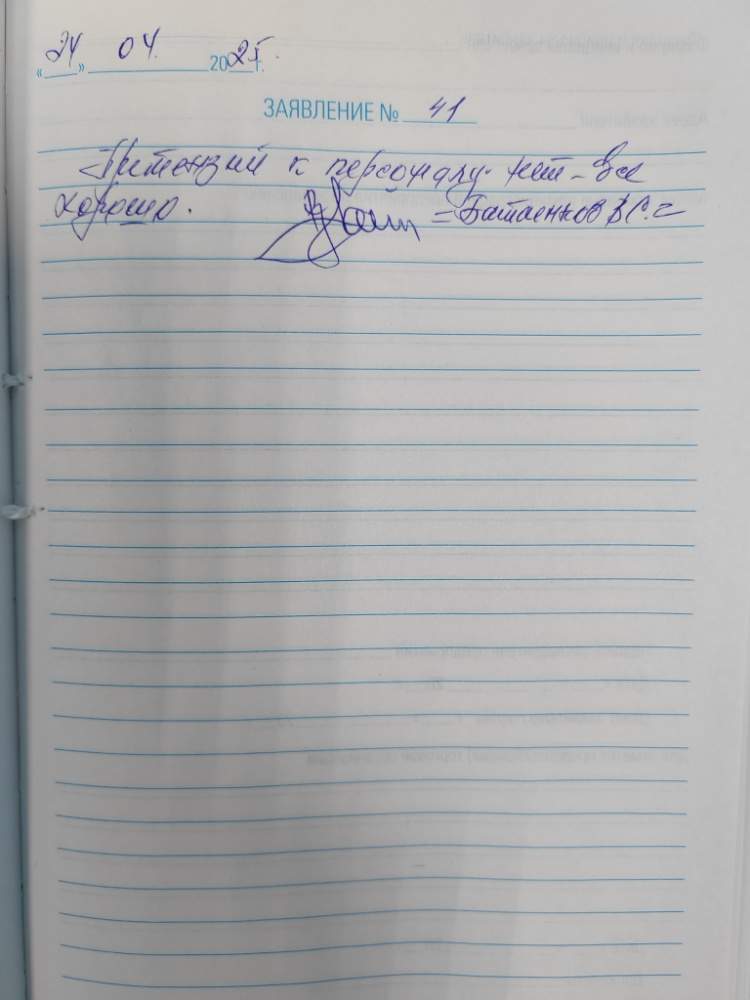 «24» 04. 2025г.
ЗАЯВЛЕНИЕ № 41
Притензий к персоналу нет – все
хорошо. = Батаенков В С. =